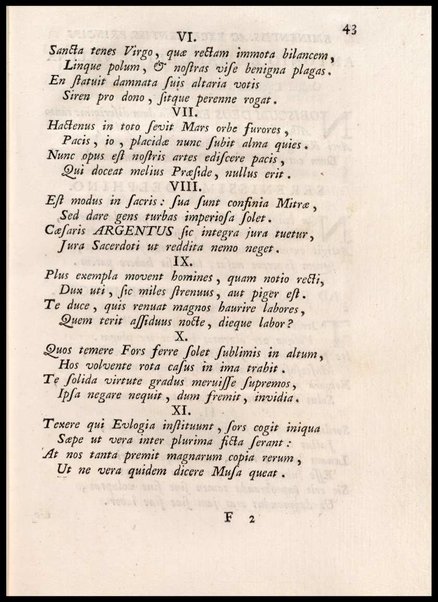 43
VI.
Sancta tenes Virgo, quæ rectam immota bilancem,
Linque polum, & noſtras viſe benigna plagas.
En ſtatuit damnata ſuis altaria votis
Siren pro dono, ſitque perenne rogat.
VII.
Hactenus in toto ſevit Mars orbe furores,
Pacis, io, placidæ nunc ſubit alma quies.
Nunc opus eſt noſtris artes ediſcere pacis,
Qui doceat melius Præſide, nullus erit.
VIII.
Eſt modus in ſacris: ſua ſunt confinia Mitræ,
Sed dare gens turbas imperioſa ſolet.
Cæſaris ARGENTUS ſic integra jura tuetur,
Jura Sacerdoti ut reddita nemo neget.
IX.
Plus exempla movent homines, quam notio recti,
Dux uti, ſic miles ſtrenuus, aut piger eſt.
Te duce, quis renuat magnos haurire labores,
Quem terit aſſiduus nocte, dieque labor?
X.
Quos temere Fors ferre ſolet ſublimis in altum,
Hos volvente rota caſus in ima trabit.
Te ſolida virtute gradus meruiſſe ſupremos,
Ipſa negare nequit, dum fremit, invidia.
XI.
Texere qui Evlogia inſtituunt, ſors cogit iniqua
Sæpe ut vera inter plurima ficta ſerant:
At nos tanta premit magnarum copia rerum,
Ut ne vera quidem dicere Muſa queat.
F 2